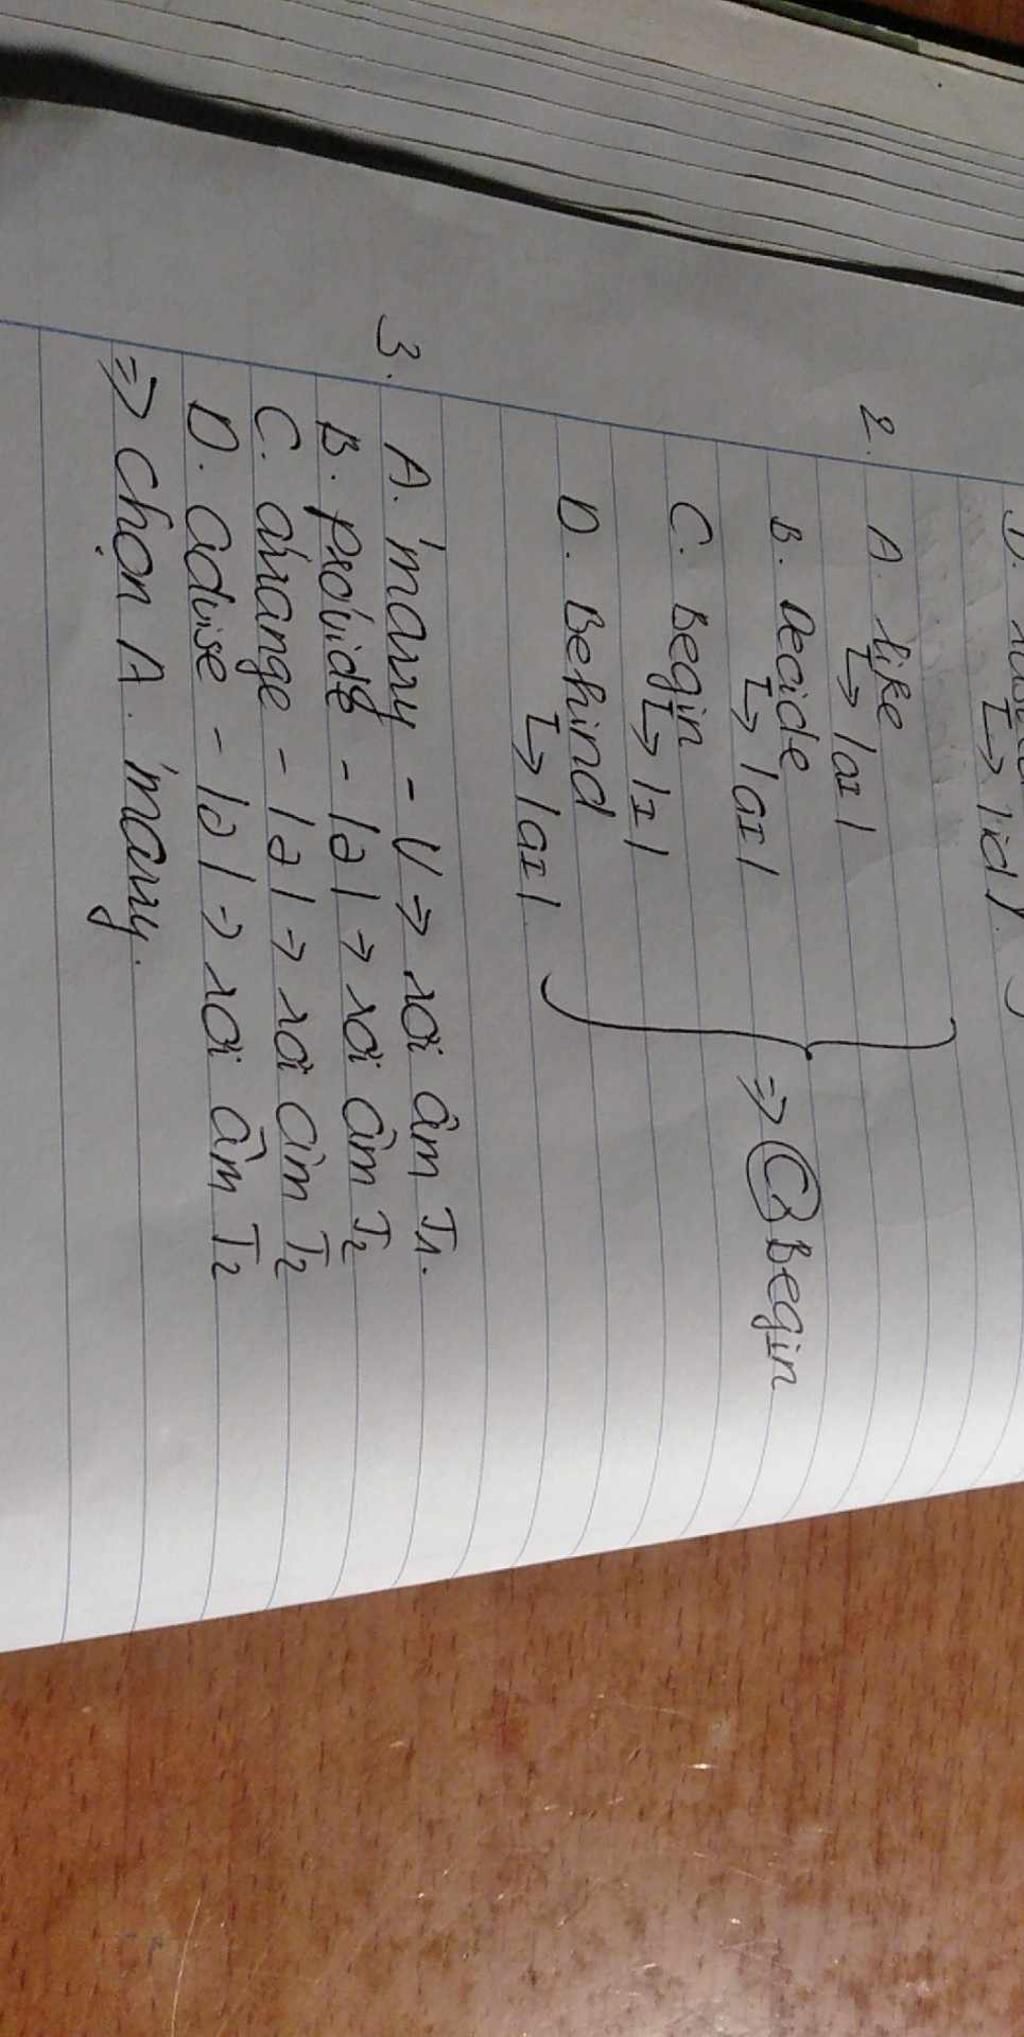 → /id/
2.
A. like
↳ /aɪ/
B. Decide
↳ /aɪ/
C. Begin
↳ /ɪ/
D. Behind
↳ /aɪ/
⇒ C, Begin
3.
A. 'many - V → rơi âm T1.
B. pro'vide - /ə/ → rơi âm T2
C. a'rrange - /ə/ → rơi âm T2
D. advise - /ə/ → rơi âm T2
⇒ chọn A. 'many.